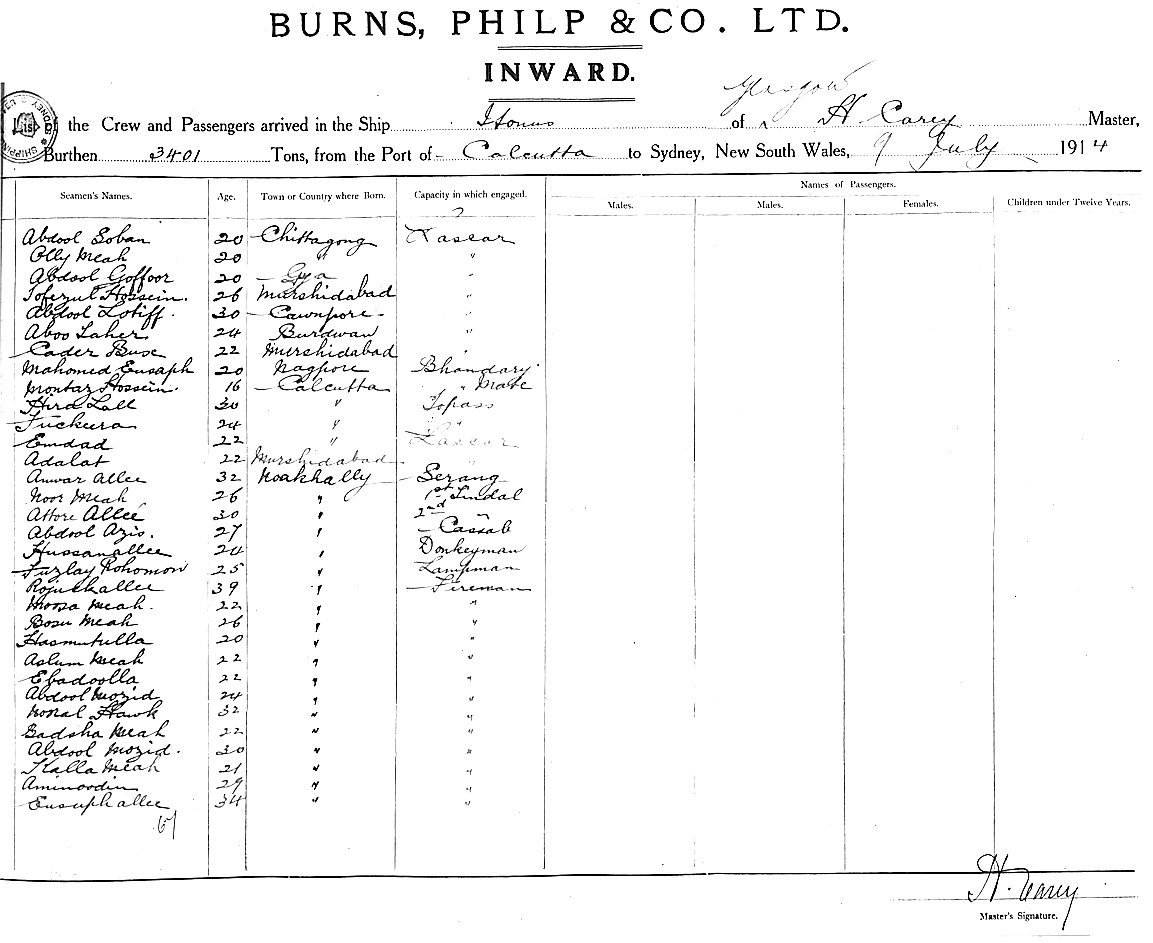 BURNS, PHILP & CO. LTD.
INWARD.
Glasgow
of the Crew and Passengers arrived in the Ship Itonus of ^ H Carey Master,
Burthen 3401 Tons, from the Port of Calcutta to Sydney, New South Wales, 9 July 1914
Names of Passengers.
Seamen's Names. Age. Town or Country where Born. Capacity in which engaged. Males. Males. Females. Children under Twelve Years.
Abdool Soban 20 Chittagong Lascar
Olly Meah 20 " "
Abdool Goffoor 20 Gya "
Tofezul Hossein. 26 Murshidabad "
Abdool Lotiff. 30 Cawnpore "
Aboo Taher 24 Burdwan "
Cader Buse 22 Murshidabad "
Mahomed Eusaph 20 Nagpore Bhandary
Montaz Hossein. 16 Calcutta " Mate
Hira Lall 30 " Topass
Fuckura 24 " "
Emdad 22 " Lascar
Adalat 22 Murshidabad "
Anwar Allee 32 Noakhally Serang
Noor Meah 26 " 1st Tindal
Attore Allee 30 " 2nd "
Abdool Azis. 27 " Cassab
Hussanallee 24 " Donkeyman
Fuzlay Rohomon 25 " Lampman
Rojuckallee 39 " Fireman
Moosa Meah. 22 " "
Bosu Meah 26 " "
Hasmutulla 20 " "
Aslum Meah 22 " "
Ebadoolla 22 " "
Abdool Mozid 24 " "
Monal Hawk 32 " "
Badsha Meah 22 " "
Abdool Mozid. 30 " "
Kalla Meah 21 " "
Aminoodin 29 " "
Eusuph allee 34 " "
67
H. Carey
Master's Signature.